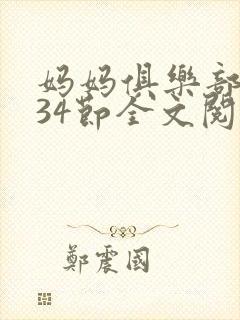 妈妈俱樂部
34節全文閱
鄭震國